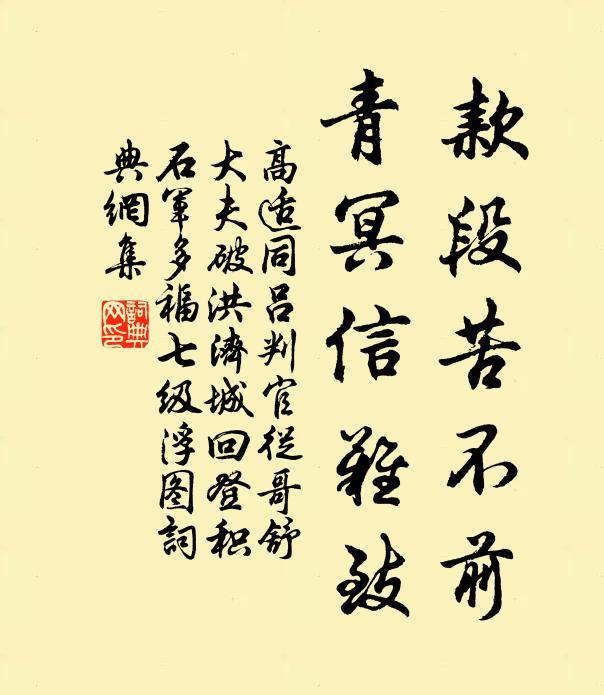 款段苦不前
青冥信難致
高适同吕判官從哥舒
大夫破洪濟城回登积
石軍多福七级浮图詞
典網集
詞典
网印